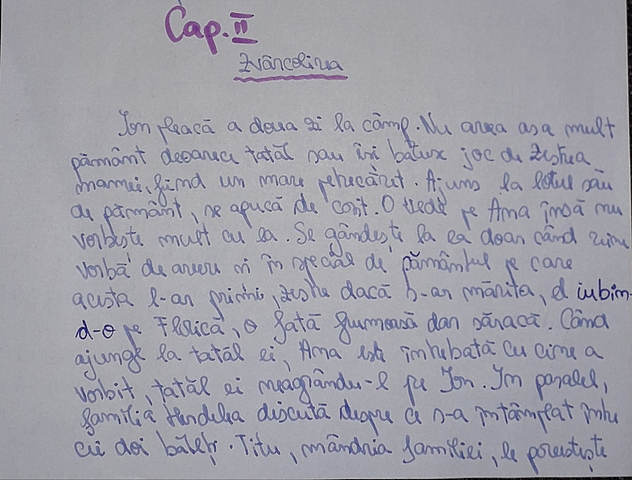 Cap. II
Zvârcolirea
Ion pleacă a doua zi la câmp. Nu avea asa mult
pământ deoarece tatăl sau îsi bătuse joc de zestrea
mamei, fiind un mare petrecăret. Ajuns la lotul său
de pământ, se apucă de cosit. O vede pe Ana însă nu
vorbeste mult cu ea. Se gândeste la ea doar când vine
vorba de avere si în special de pământul pe care
acesta l-ar primi, zestre dacă s-ar mărita, el iubin-
d-o pe Florică, o fată frumoasă dar săracă. Când
ajunge la tatăl ei, Ana este întrebată cu cine a
vorbit, tatăl ei neagrându-l pe Ion. In paralel,
familia Herdelea discută despre ce s-a întâmplat între
cei doi băieți. Titu, mândria familiei, le povesteste